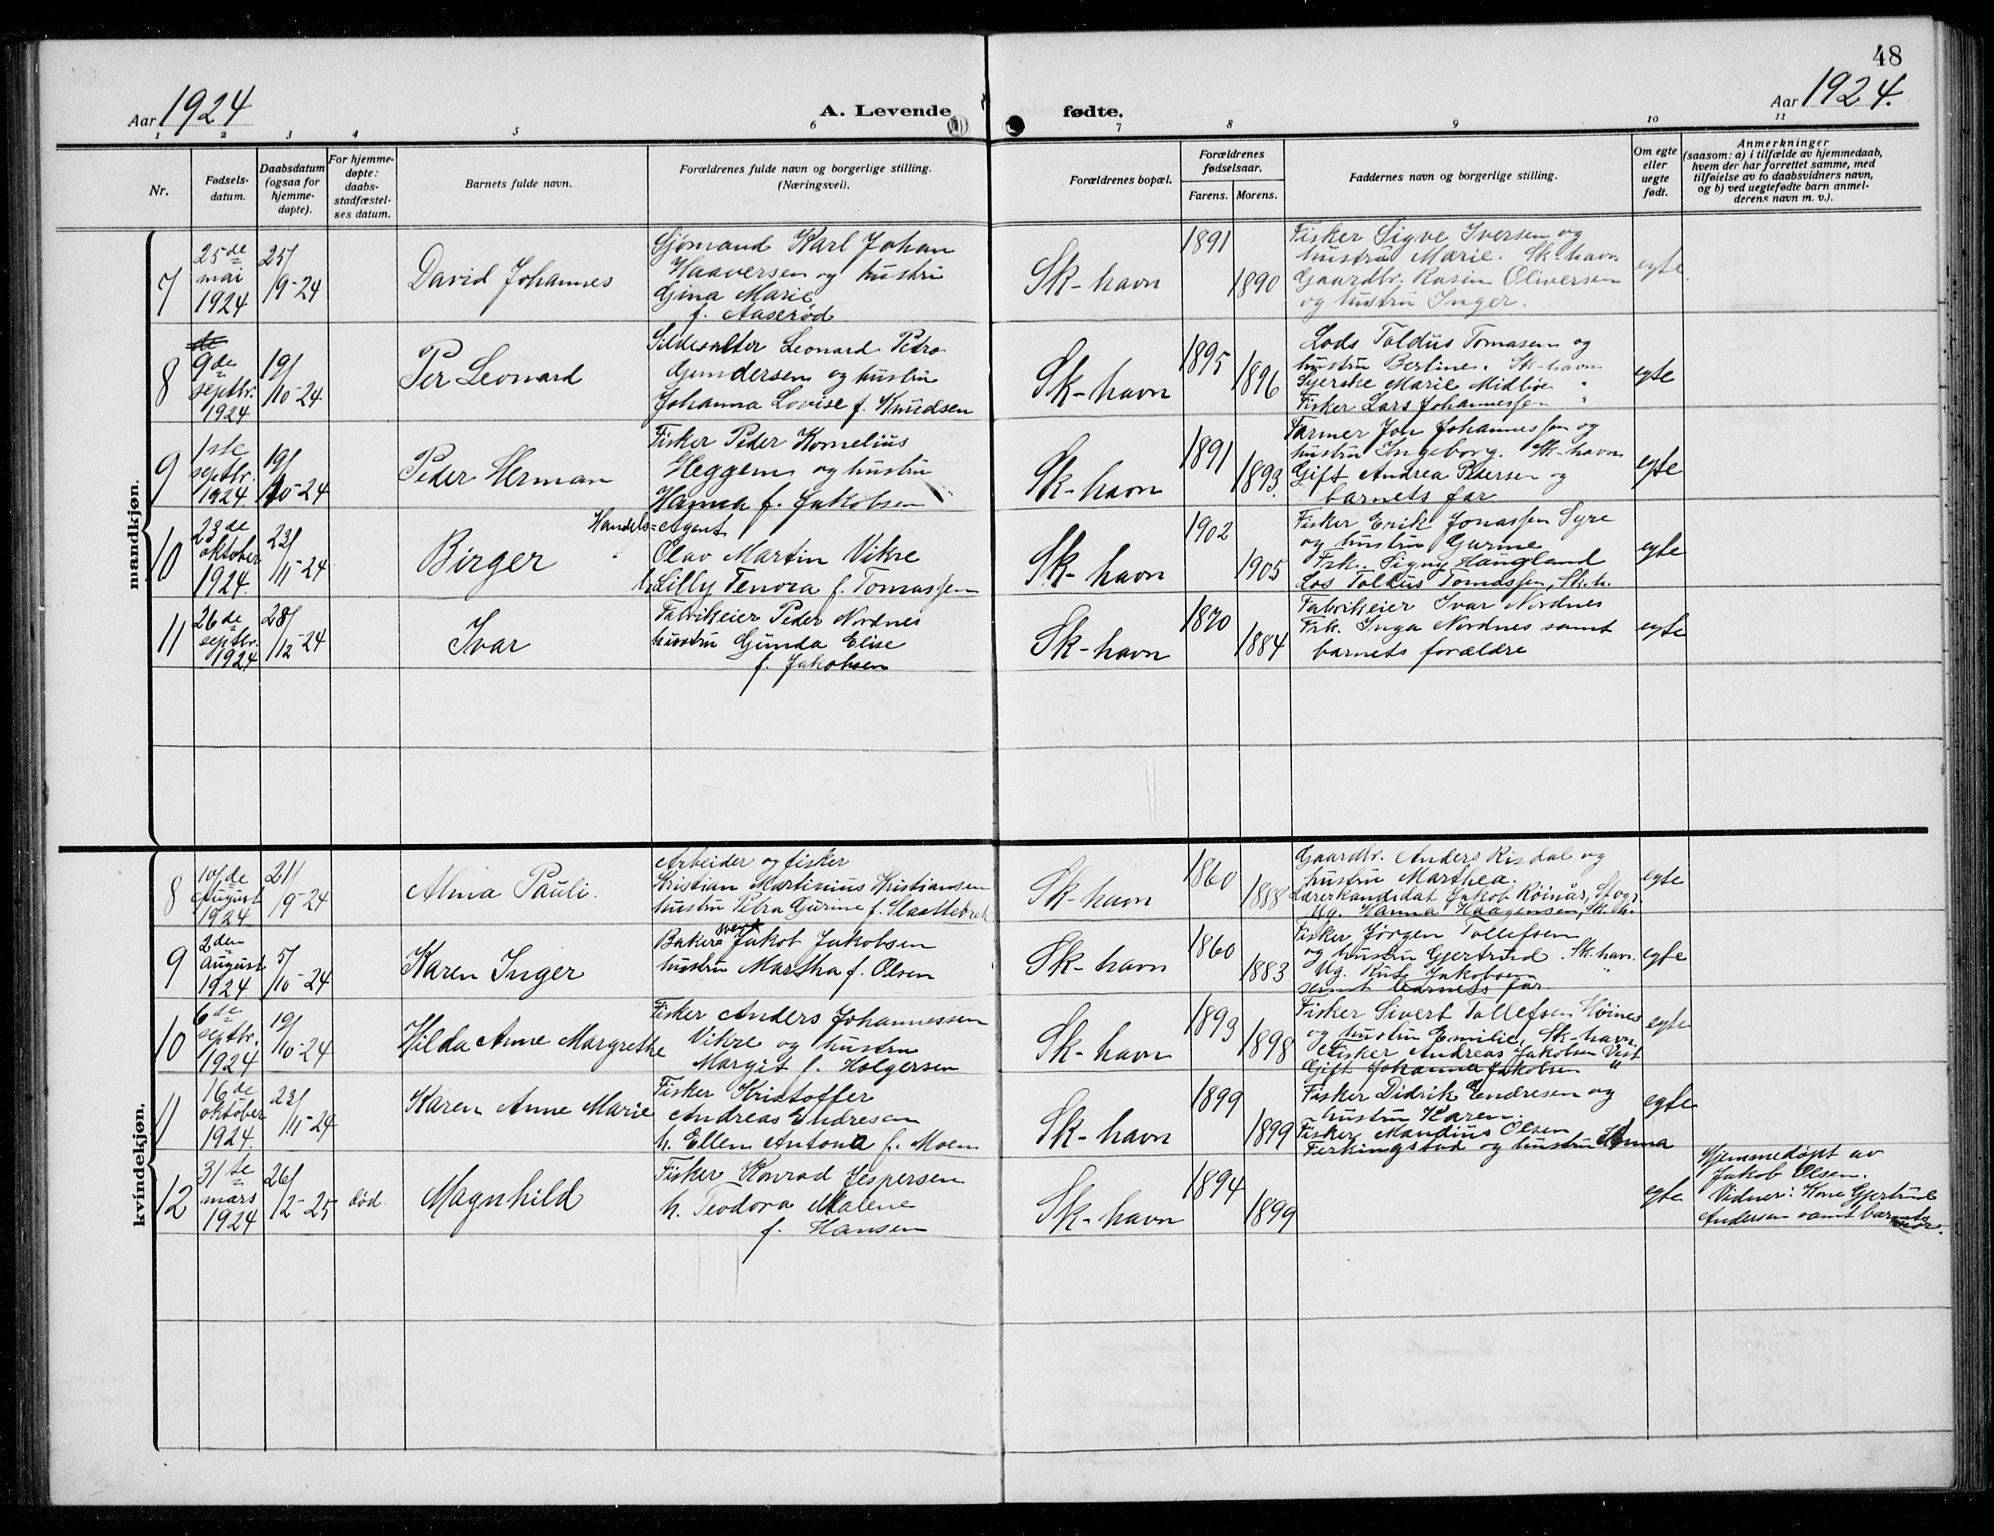 48
Aar 1924
A. Levende fødte.
Aar 1924.
1 2 3 4 5 6 7 8 9 10 11
Nr.
Fødsels-
datum.
Daabsdatum
(ogsaa for
hjemme-
døpte).
For hjemme-
døpte:
daabs-
stadfæstel-
ses datum.
Barnets fulde navn.
Forældrenes fulde navn og borgerlige stilling.
(Næringsvei).
Forældrenes bopæl.
Forældrenes
fødselsaar.
Farens. Morens.
Faddernes navn og borgerlige stilling.
Om egte
eller
uegte
født.
Anmerkninger
(saasom: a) i tilfælde av hjemmedaab,
hvem der har forrettet samme, med
tilføielse av to daabsvidners navn,
og b) ved uegtefødte barn anmel-
derens navn m. v.).
mandkjøn.
7
25de
mai
1924
25/
19-24
David Johannes
Sjømand Karl Johan
Haaversen og hustru
Gina Marie
f. Aaserød
Sk-havn
1891
1890
Fisker Sigve Iversen og
hustru Marie. Sk-havn
Gaardbr. Rasin Oliversen
og hustru Inger.
egte
8
9de
septbr.
1924
19/
10-24
Per Leonard
Sildesalter Leonard Petro
Gundersen og hustru
Johanna Lovise f. Knudsen
Sk-havn
1895
1896
Lods Toldus Tomasen og
hustru Berline. Sk-havn
Syerske Marie Midbøe "
Fisker Lars Johannessen "
egte
9
1ste
septbr.
1924
19/
10-24
Peder Herman
Fisker Peder Kornelius
Heggem og hustru
Hanna f. Jakobsen
Sk-havn
1891
1893.
Farmer Jon Johannessen og
hustru Ingeborg. Sk-havn
Gift Andrea Pedersen og
barnets far
egte
10
23de
oktober
1924.
23/
11-24
Birger
Handels=Agent
Olav Martin Vikre
h. Lilly Tenora f. Tomassen
Sk-havn
1902
1905
Fisker Erik Jonassen Syre
og hustru Gurine
Frk. Signy Haugland
Los Toldus Tomassen, Sk.h.
egte
11
26de
septbr.
1924
28/
12-24
Ivar
Fabrikeier Peder Nordnes
hustru Gunda Elise
f. Jakobsen
Sk-havn
1870
1884
Fabrikeier Ivar Nordnes
Frk. Inga Nordnes samt
barnets forældre
egte
kvindekjøn.
8
10/de
August
1924
21/
19-24
Alma Pauli.
Arbeider og fisker
Kristian Martinius Kristiansen
hustru Petra Gurine f. Slaattebrek
Sk-havn
1860
1888
Gaardbr. Anders Risdal og
hustru Marthea.
Lærerkandidat Jakob Røinås,
Ug. Hanna Haagensen, Sk.h.
egte
9
2den
august
1924
5/
10-24
Karen Inger
Baker Jakob Jakobsen
hustru Martha f. Olsen
Sk-havn
1860
1883
Fisker Jørgen Tollefsen
og hustru Gjertrud. Sk-havn.
Ug. Rut Jakobsen "
samt barnets far.
egte
10
6de
septbr.
1924
19/
10-24
Hilda Anne Margrethe
Fisker Anders Johannessen
Vikre og hustru
Margit f. Holgersen
Sk-havn
1893
1898
Fisker Sivert Tollefsen Høines
og hustru Emilie, Sk-havn.
Fisker Andreas Jakobsen Vest
Gift Johanne Jakobsen "
egte
11
16de
oktober
1924.
23/
11-24
Karen Anne Marie
Fisker Kristoffer
Andreas Endresen
h. Ellen Antona f. Moen
Sk-havn
1899
1899
Fisker Didrik Endresen og
hustru Karen.
Fisker Mandius Olsen
Ferkingstad og hustru Anna
egte
12
31/te
mars
1924
26/
12-25
død.
Magnhild
Fisker Konrad Jespersen
h. Teodora Malene
f. Hansen
Sk-havn
1894
1899
egte
Hjemmedøpt av
Jakob Olsen.
Vidner: Kone Gjertrud
Andersen samt barnets
mor.